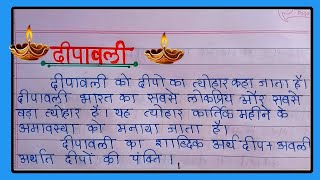 दीपावली
दीपावली को दीपों का त्योहार कहा जाता है।
दीपावली भारत का सबसे लोकप्रिय और सबसे
बड़ा त्योहार है। यह त्योहार कार्तिक महीने के
अमावस्या को मनाया जाता है।
दीपावली का शाब्दिक अर्थ दीप+अवली
अर्थात दीपों की पंक्ति।